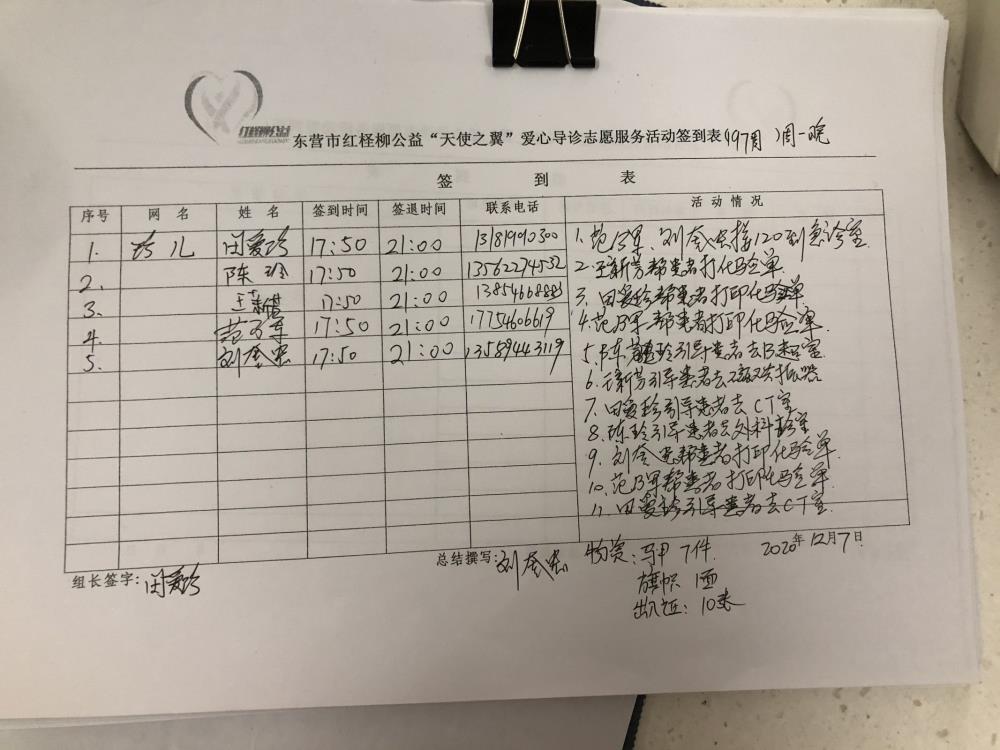 红柽柳公益
东营市红柽柳公益“天使之翼”爱心导诊志愿服务活动签到表 周一晚
签 到 表
序号 网 名 姓 名 签到时间 签退时间 联系电话 活 动 情 况
1. 珍儿 田爱珍 17:50 21:00 13181990300
2. 陈玲 17:50 21:00 13562274532
3. 17:50 21:00
4. 范乃军 17:50 21:00 17754606619
5. 刘奎忠 17:50 21:00 13589443119
1、范乃军、刘奎忠接120到急诊室
2、王新芳帮患者打化验单
3、田爱珍帮患者打印化验单
4、范乃军帮患者打印化验单
5、陈玲引导患者去B超室
6、王新芳引导患者去
7、田爱珍引导患者去CT室
8、陈玲引导患者去外科诊室
9、刘奎忠帮患者打印化验单
10、范乃军帮患者打印化验单
11、田爱珍引导患者去CT室
组长签字：田爱珍
总结撰写：刘奎忠
物资：马甲7件
旗帜 1面
出入证：10张
2020年12月7日